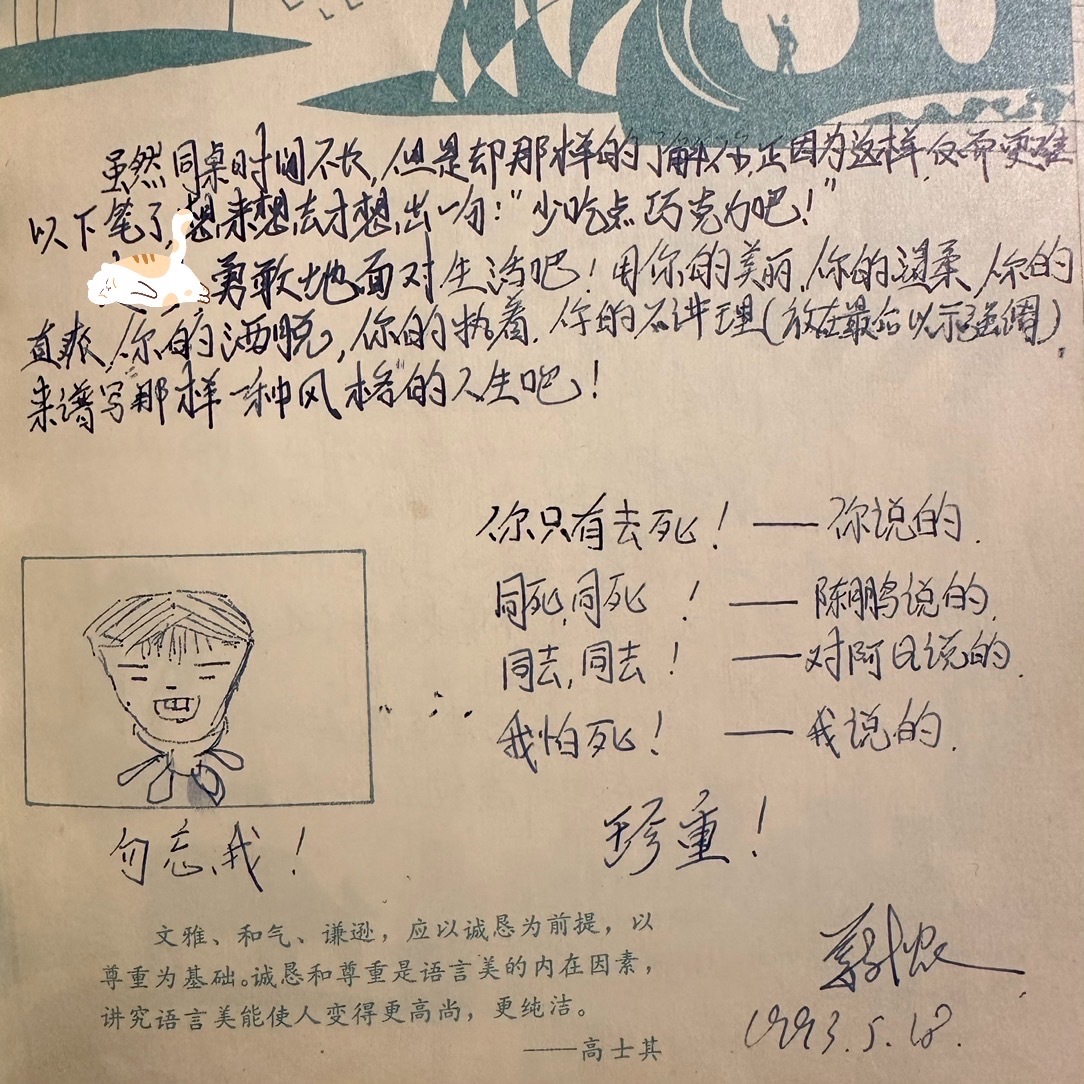 虽然同桌时间不长，但是却那样的了解你，正因为这样，反而更难
以下笔了，想来想去才想出一句：“少吃点巧克力吧！”
勇敢地面对生活吧！用你的美丽，你的温柔，你的
直爽，你的洒脱，你的执着，你的不讲理（放在最后以示强调）
来谱写那样一种风格的人生吧！
你只有去死！——你说的．
同死，同死！——陈鹏说的．
同去，同去！——对阿Q说的．
我怕死！——我说的．
珍重！
勿忘我！
文雅、和气、谦逊，应以诚恳为前提，以
尊重为基础。诚恳和尊重是语言美的内在因素，
讲究语言美能使人变得更高尚，更纯洁。
——高士其
1993.5.18.